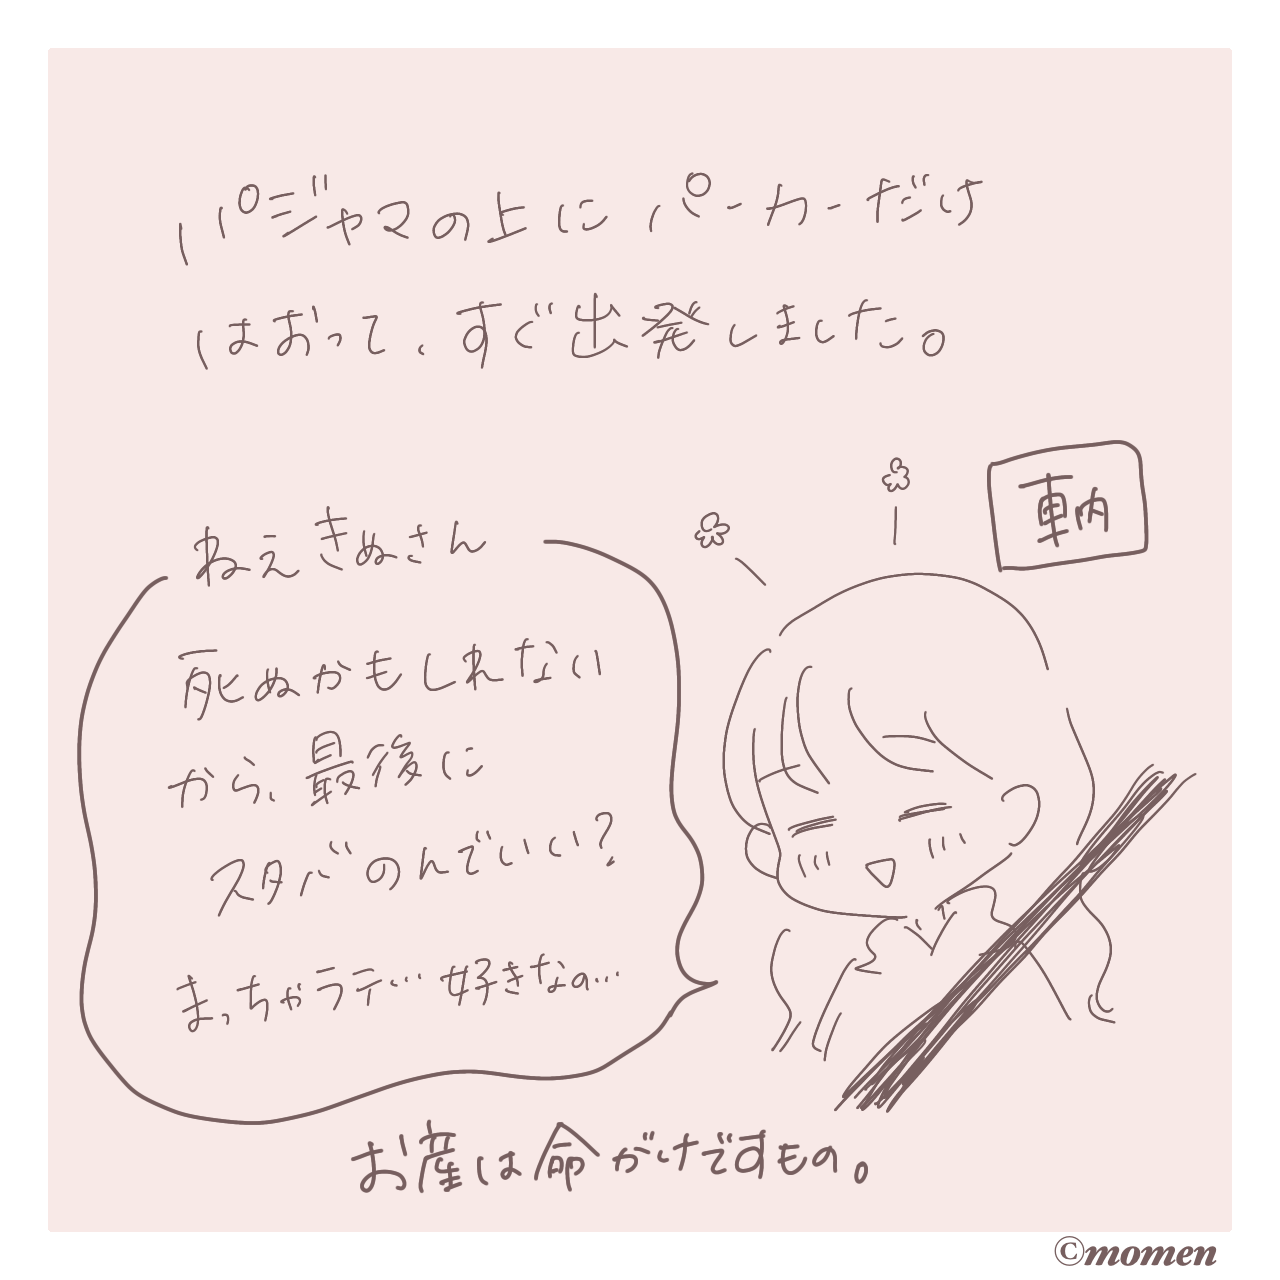 パジャマの上にパーカーだけ
はおって、すぐ出発しました。
車内
ねえきぬさん
死ぬかもしれない
から、最後に
スタバのんでいい?
まっちゃラテ… 好きなの…
お産は命がけですもの。
©momen